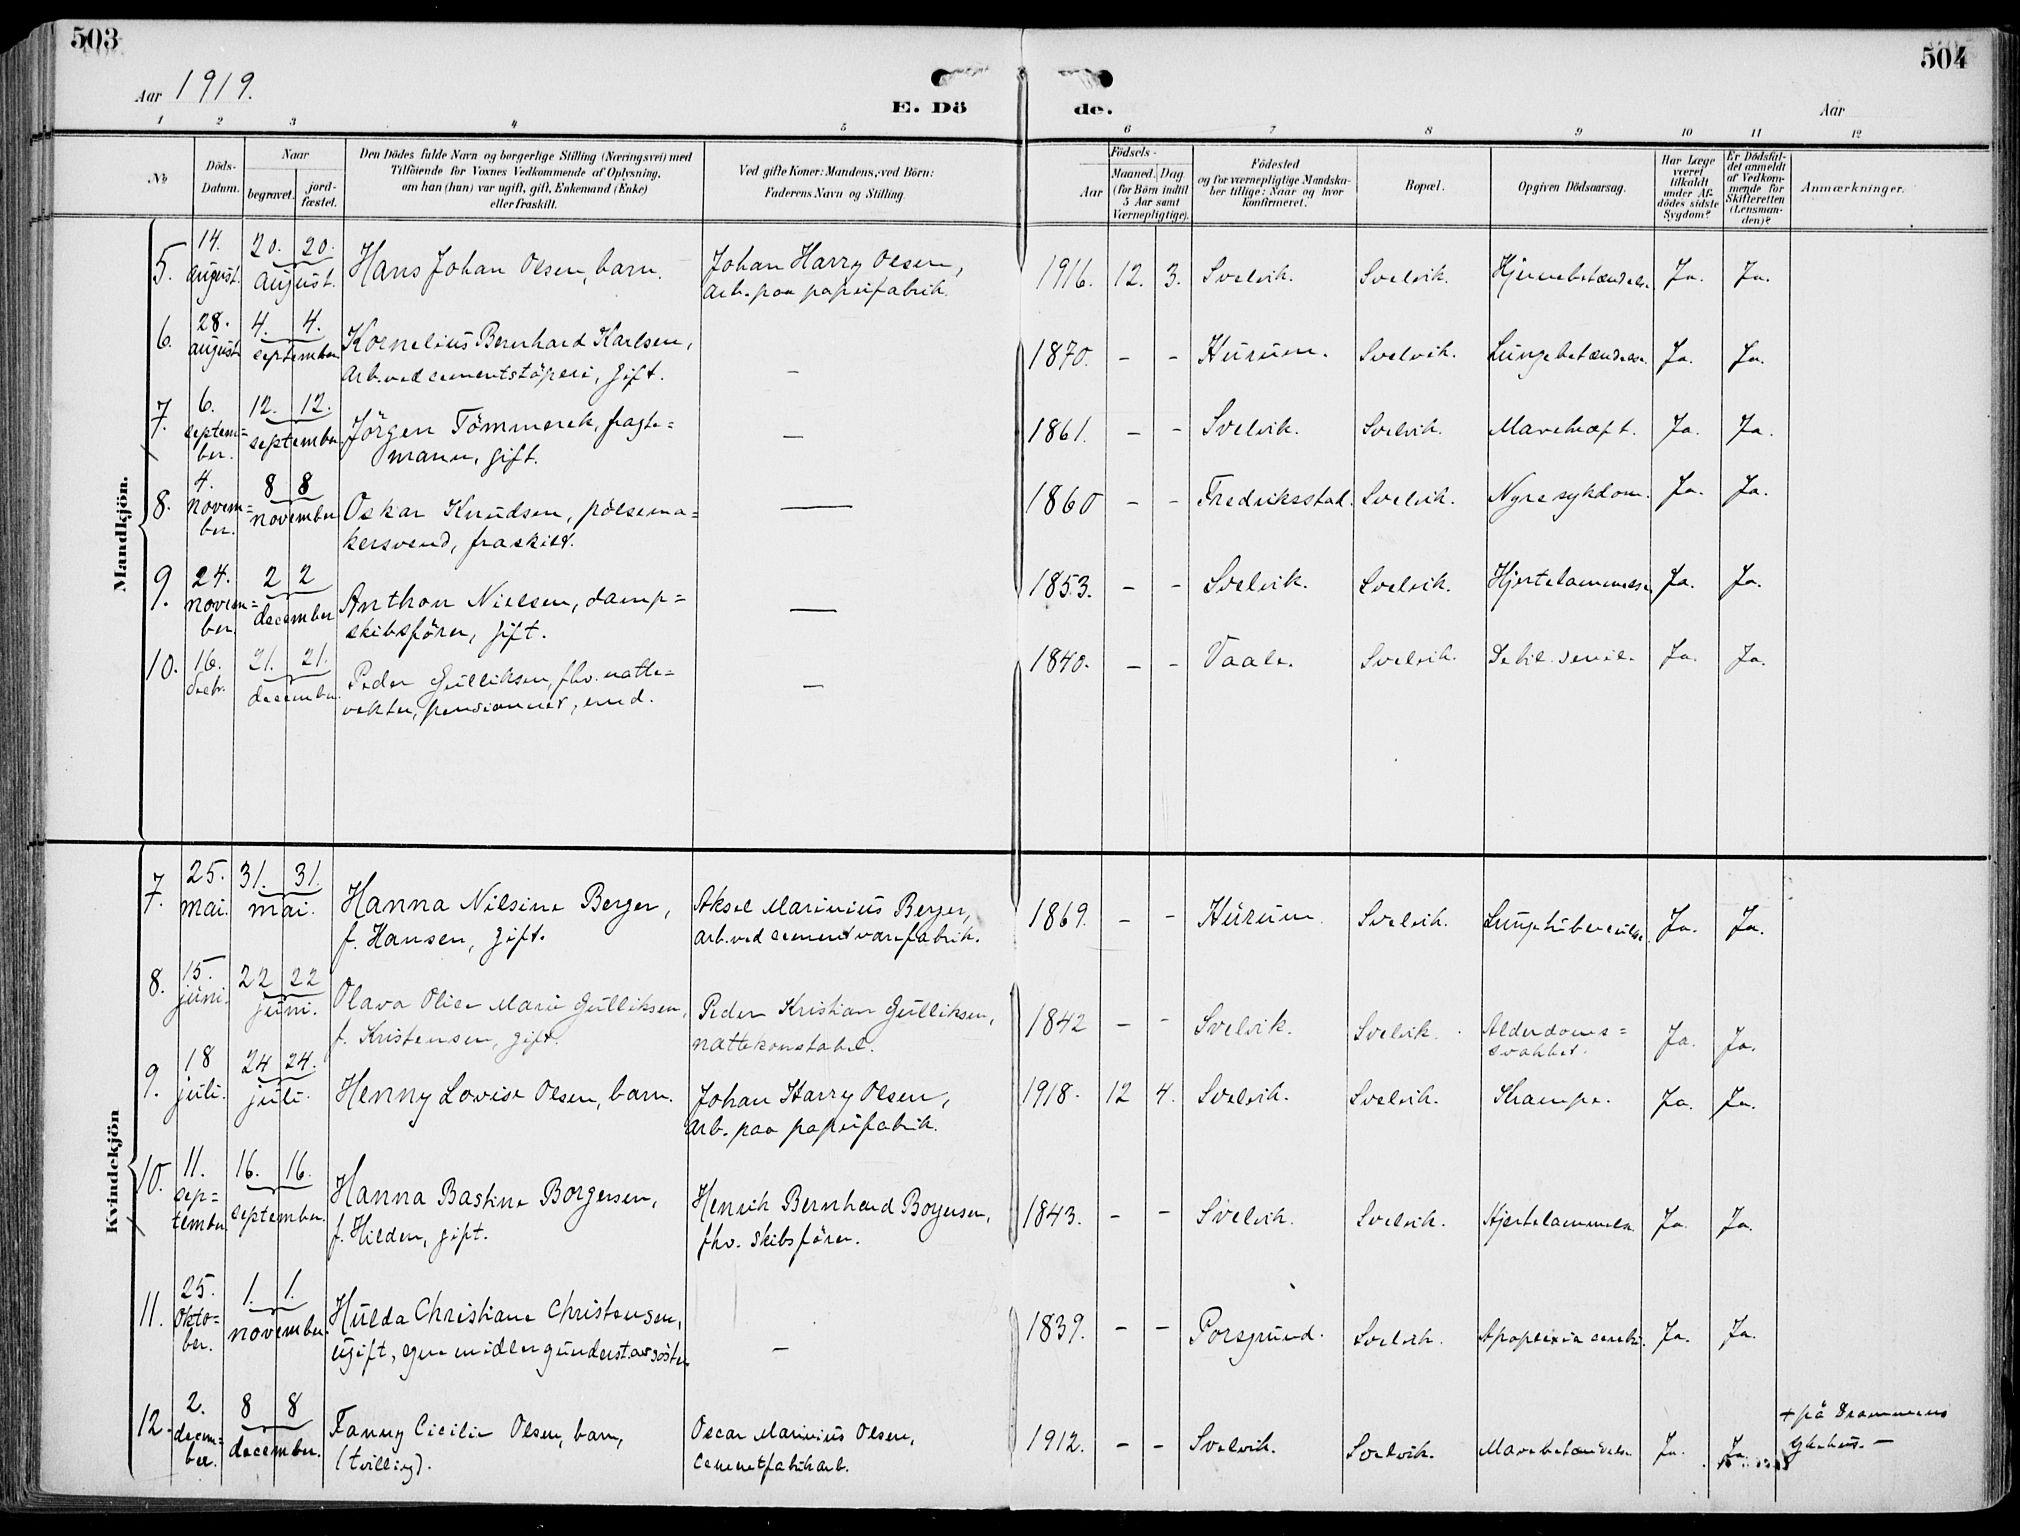 503
504
Aar 1919.
E. Dö
de.
Aar
1 2 3 4 5 6 7 8 9 10 11 12
No
Döds-
Datum.
Naar
begravet.
jord-
fæstet.
Den Dödes fulde Navn og borgerlige Stilling (Næringsvei) med
Tilföiende for Voxnes Vedkommende af Oplysning,
om han (hun) var ugift, gift, Enkemand (Enke)
eller fraskilt.
Ved gifte Koner: Mandens, ved Börn:
Faderens Navn og Stilling.
Födsels-
Aar
Maaned.
Dag.
(for Börn indtil
5 Aar samt
Værnepligtige).
Födested
og for værnepligtige Mandska-
ber tillige: Naar og hvor
konfirmeret.
Bopæl.
Opgiven Dödsaarsag.
Har Læge
været
tilkaldt
under Af-
dödes sidste
Sygdom?
Er Dödsfal-
det anmeldt
af Vedkom-
mende for
Skifteretten
(Lensman-
den)?
Anmærkninger.
Mandkjön.
5. 14. august. 20. 20. august. Hans Johan Olsen, barn. Johan Harry Olsen,
arb. paa papirfabrik. 1916. 12. 3. Svelvik. Svelvik. Hjernebetændelse. Ja. Ja.
6. 28. august 4. 4. september Kornelius Bernhard Karlsen,
arb. ved cementstöperi, gift. — 1870. - - Hurum. Svelvik. Lungebetændelse. Ja. Ja.
7. 6. septem=
ber. 12. 12. september. Jörgen Tömmerek, fragte=
mann, gift. — 1861. - - Svelvik. Svelvik. Mavekræft. Ja. Ja.
8. 4. novem=
ber. 8 8 november Oskar Knudsen, pölsema=
kersvend, fraskilt. — 1860 - - Fredriksstad. Svelvik. Nyresykdom. Ja. Ja.
9. 24. novem=
ber. 2 2 december Anthon Nielsen, damp=
skibsförer, gift. — 1853. - - Svelvik. Svelvik. Hjertelammelse Ja. Ja.
10. 16. decbr. 21. 21. december. Peder Gulliksen, fhv. natte=
vekter, pensionner, emd. — 1840. - - Vaale. Svelvik. Debil. senil. Ja. Ja.
Kvindekjön
7. 25. mai. 31. 31. mai. Hanna Nilsine Berger,
f. Hansen, gift. Aksel Marinius Berger,
arb. ved cementvarefabrik. 1869. - - Hurum. Svelvik. Lungetuberculose. Ja. Ja.
8. 15. juni. 22 22 juni. Olava Olise Marie Gulliksen,
f. Kristensen, gift. Peder Kristian Gulliksen,
nattekonstabel. 1842 - - Svelvik. Svelvik. Alderdoms=
svakhet. Ja. Ja.
9. 18 juli. 24 24. juli. Henny Lovise Olsen, barn. Johan Harry Olsen,
arb. paa papirfabrik. 1918. 12 4. Svelvik. Svelvik. Krampe. Ja. Ja.
10. 11. sep=
tember 16. 16. september. Hanna Bastine Borgersen,
f. Hilden, gift. Henrik Bernhard Borgersen,
fhv. skibsförer. 1843. - - Svelvik. Svelvik. Hjertelammelse. Ja. Ja.
11. 25. Okto=
ber. 1. 1. november. Hulda Christiane Christensen,
ugift, — 1839. - - Porsgrund. Svelvik. Apoplexia cerebri. Ja. Ja.
12. 2. decem=
ber. 8 8 december. Fanny Cicilie Olsen, barn,
(tvilling). Oscar Marinius Olsen,
Cementfabrikarb. 1912. - - Svelvik. Svelvik. Mavebetændelse Ja. Ja. + på Drammens
sykehus. —